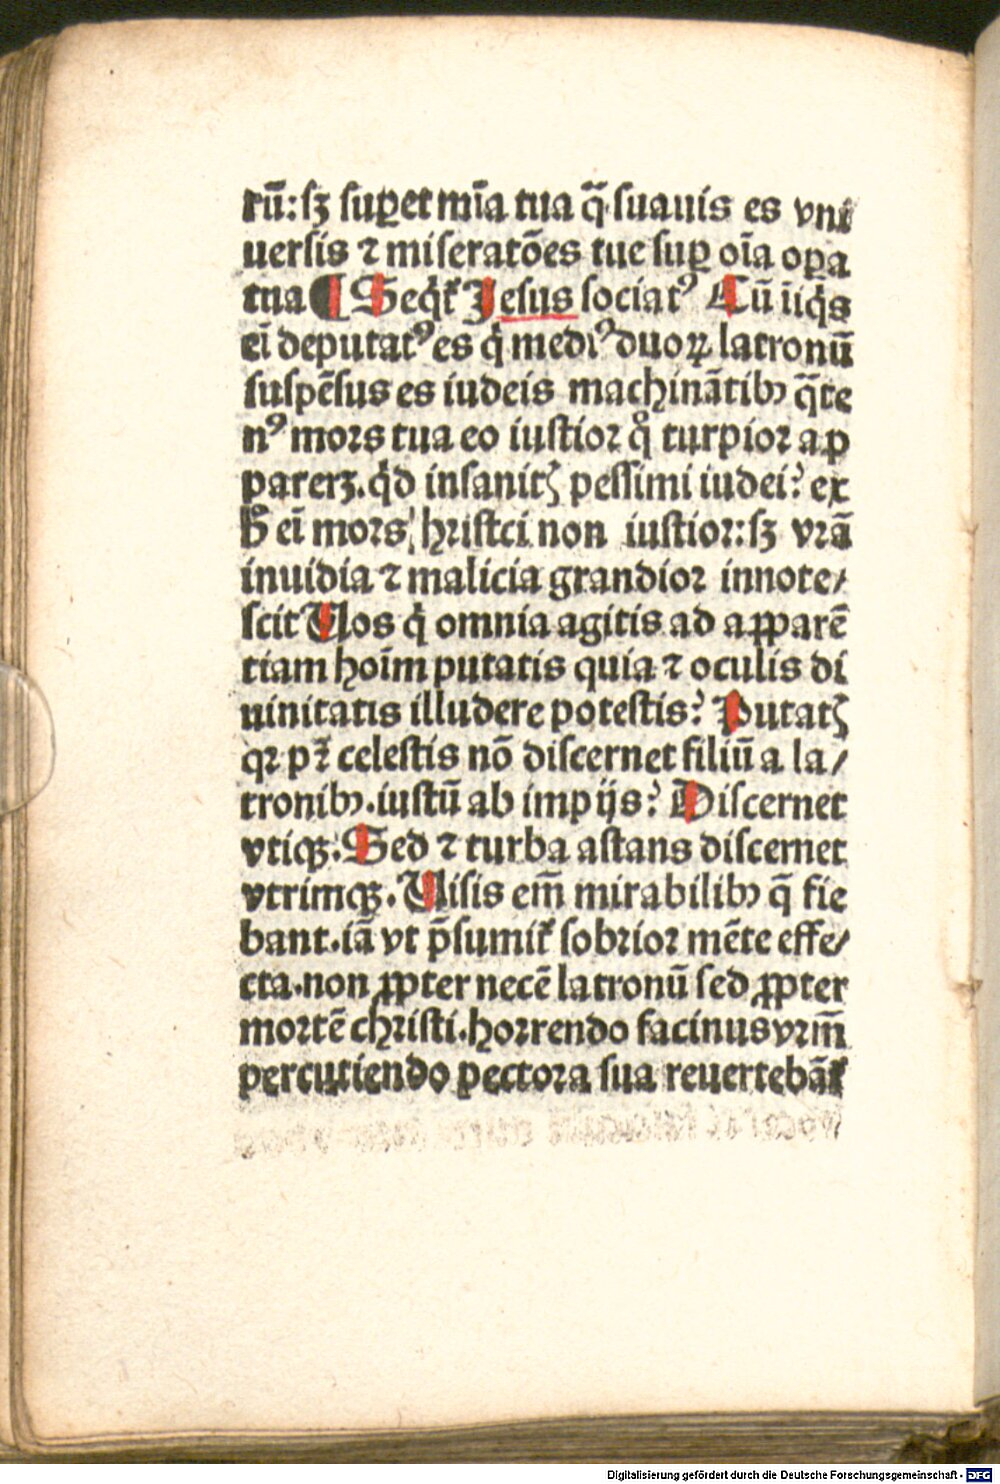 tū: sꝫ suꝑet mīa tua q̄ suauis es vni
uersis ⁊ miseratōes tue suꝑ oīa oꝑa
tua ¶ Seqͥtᷣ Jesus sociatꝰ Cū īiqͥs
ei deputatꝰ es qͥ mediꝰ duoꝝ latronū
suspēsus es iudeis machinātibꝰ q̄te
nꝰ mors tua eo iustior qͦ turpior ap
parerꝫ. qͥd insanitꝭ pessimi iudei? ex
h̄ ei mors hristci non iustior: sꝫ vrā
inuidia ⁊ malicia grandior innote/
scit Vos qͥ omnia agitis ad apparē
tiam hoīm putatis quia ⁊ oculis di
uinitatis illudere potestis? Putatꝭ
qꝛ pꝛ̄ celestis nō discernet filiū a la/
tronibꝰ. iustū ab impijs? Discernet
vtiqꝫ. Sed ⁊ turba astans discernet
vtrimqꝫ. Visis em̄ mirabilibꝰ q̄ fie
bant. iā vt p̄sumitᷣ sobrior mēte effe/
cta. non ꝓpter necē latronū sed ꝓpter
mortē christi. horrendo facinus vrm̄
percutiendo pectora sua reuertebātᷣ
Digitalisierung gefördert durch die Deutsche Forschungsgemeinschaft - DFG